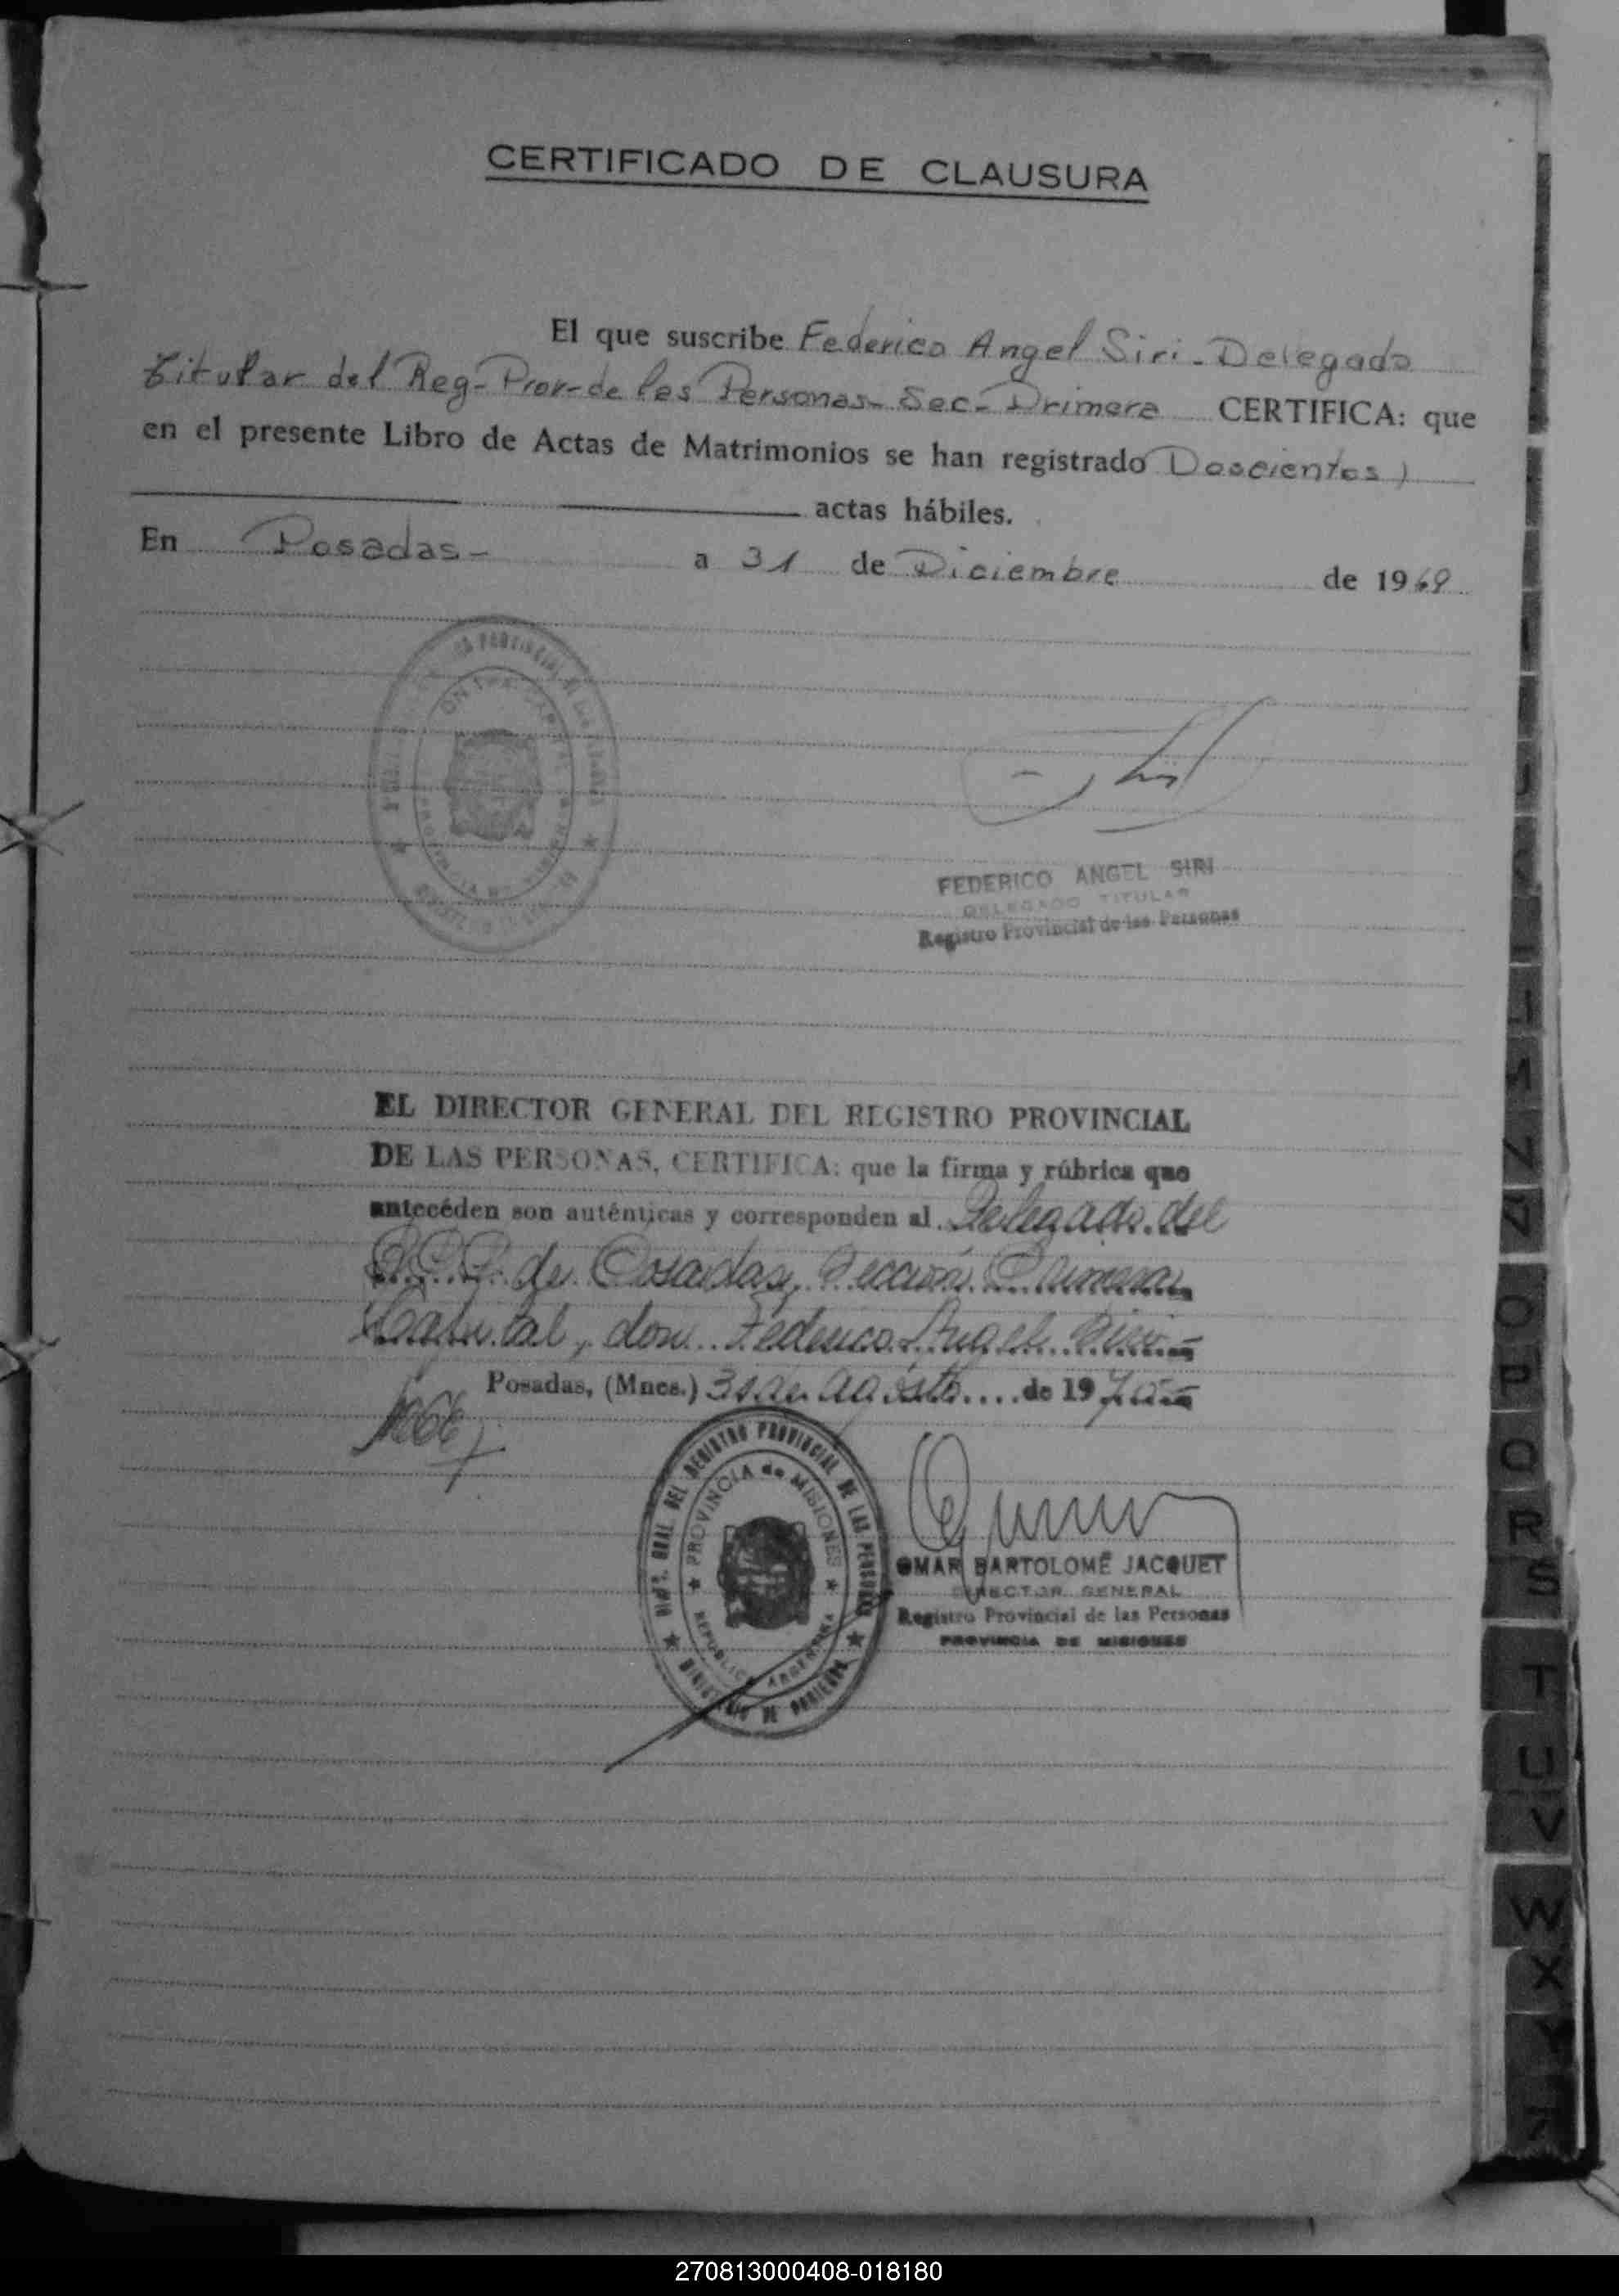 CERTIFICADO DE CLAUSURA
El que suscribe Federico Angel Siri - Delegado
titular del Reg- Prov- de las Personas- Sec- Primera CERTIFICA: que
en el presente Libro de Actas de Matrimonios se han registrado Doscientos)
actas hábiles.
En Posadas- a 31 de Diciembre de 1969
FEDERICO ANGEL SIRI
DELEGADO TITULAR
Registro Provincial de las Personas
EL DIRECTOR GENERAL DEL REGISTRO PROVINCIAL
DE LAS PERSONAS, CERTIFICA: que la firma y rúbrica que
antecéden son auténticas y corresponden al Delegado del
R.P.P. de Posadas, Sección Primera
Capital, don Federico Angel Siri.-
Posadas, (Mnes.) 31 de agosto de 1970.-
DIRC. GRAL. DEL REGISTRO PROVINCIAL DE LAS PERSONAS
PROVINCIA de MISIONES
REPUBLICA ARGENTINA
MINISTERIO DE GOBIERNO
OMAR BARTOLOMÉ JACQUET
DIRECTOR GENERAL
Registro Provincial de las Personas
PROVINCIA DE MISIONES
O
P
Q
R
S
T
U
V
W
X
Y
Z
270813000408-018180